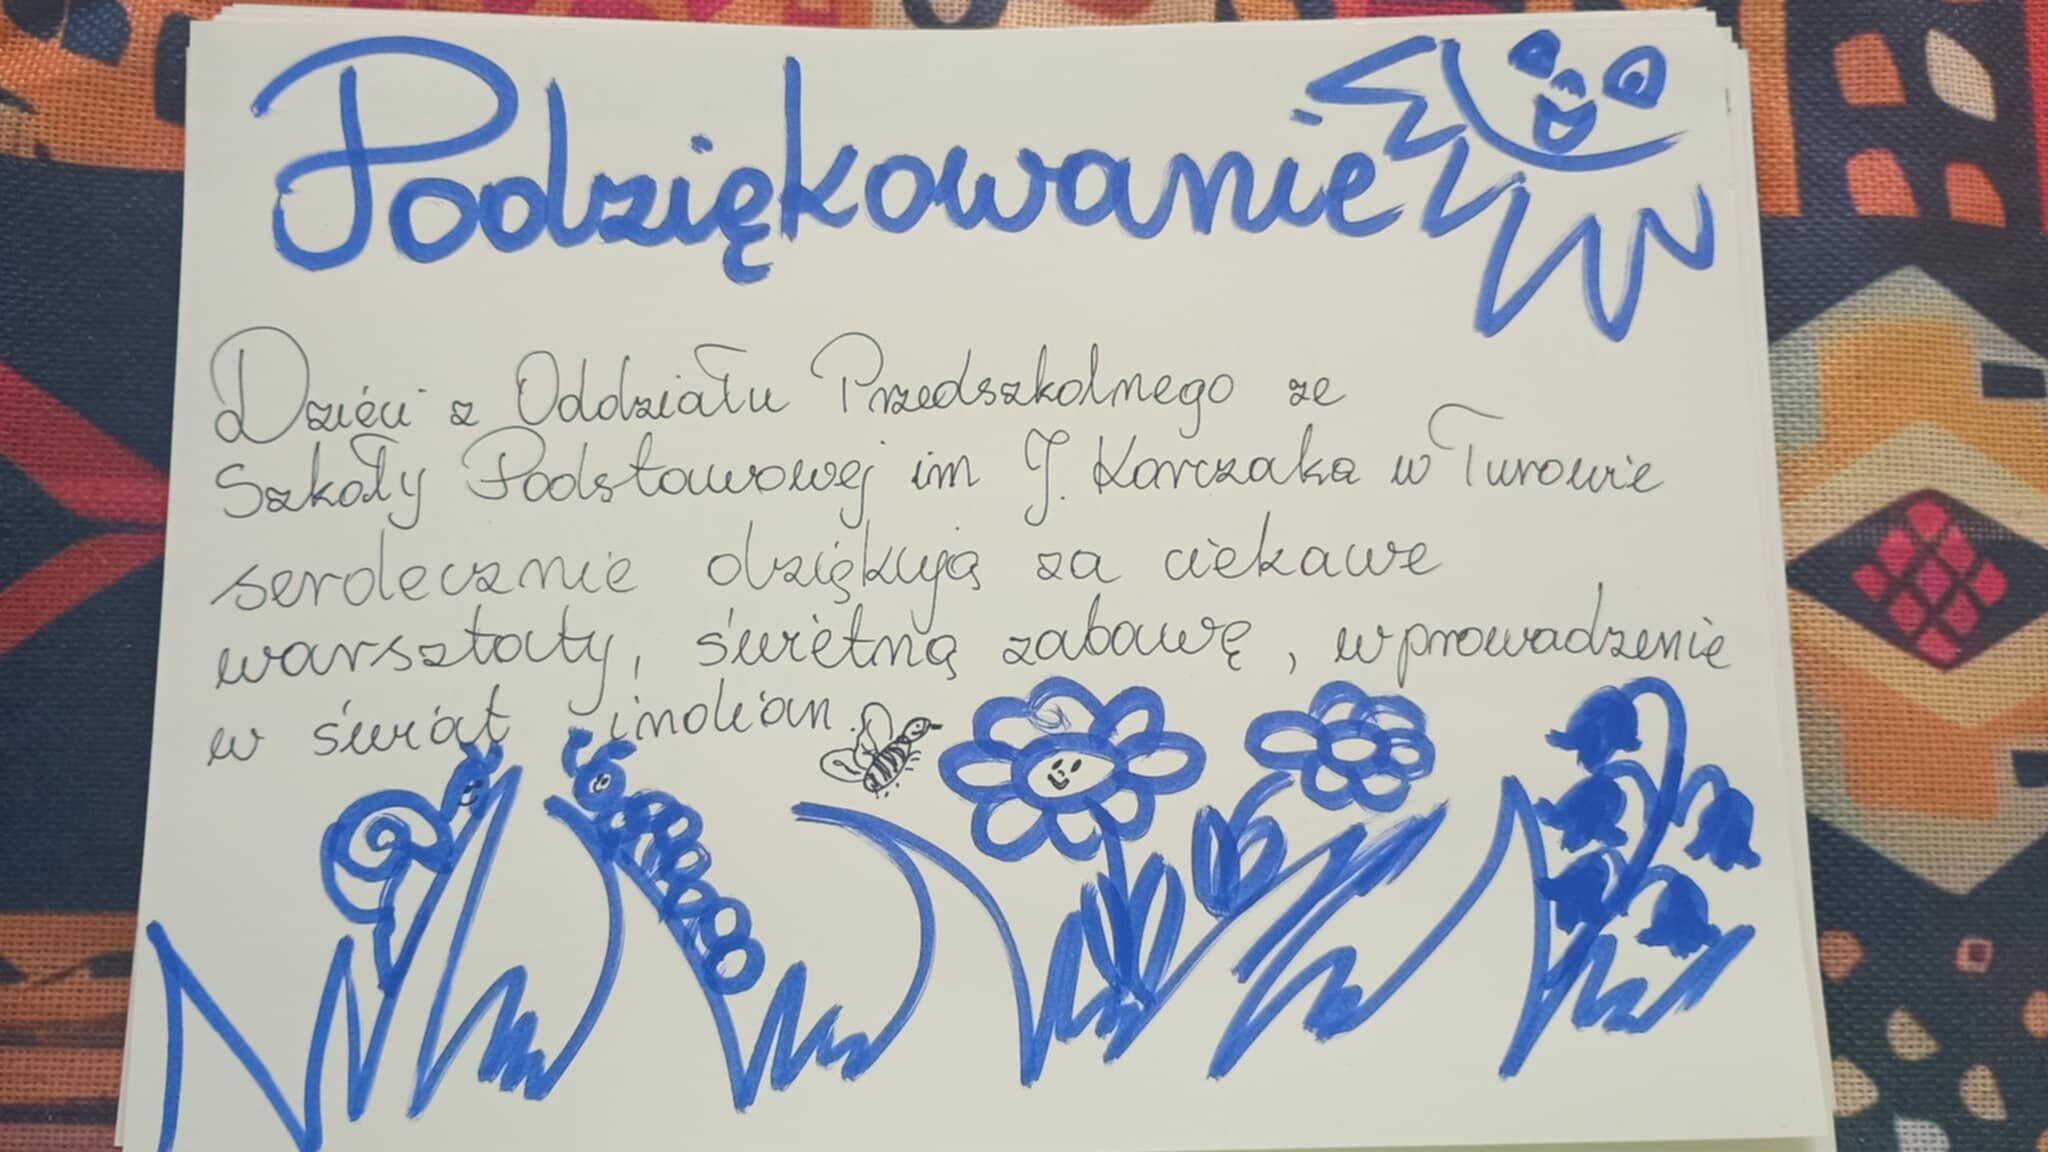 Podziękowanie
Dzieci z Oddziału Przedszkolnego ze
Szkoły Podstawowej im J. Korczaka w Turowie
serdecznie dziękują za ciekawe
warsztaty, świetną zabawę, wprowadzenie
w świat indian.